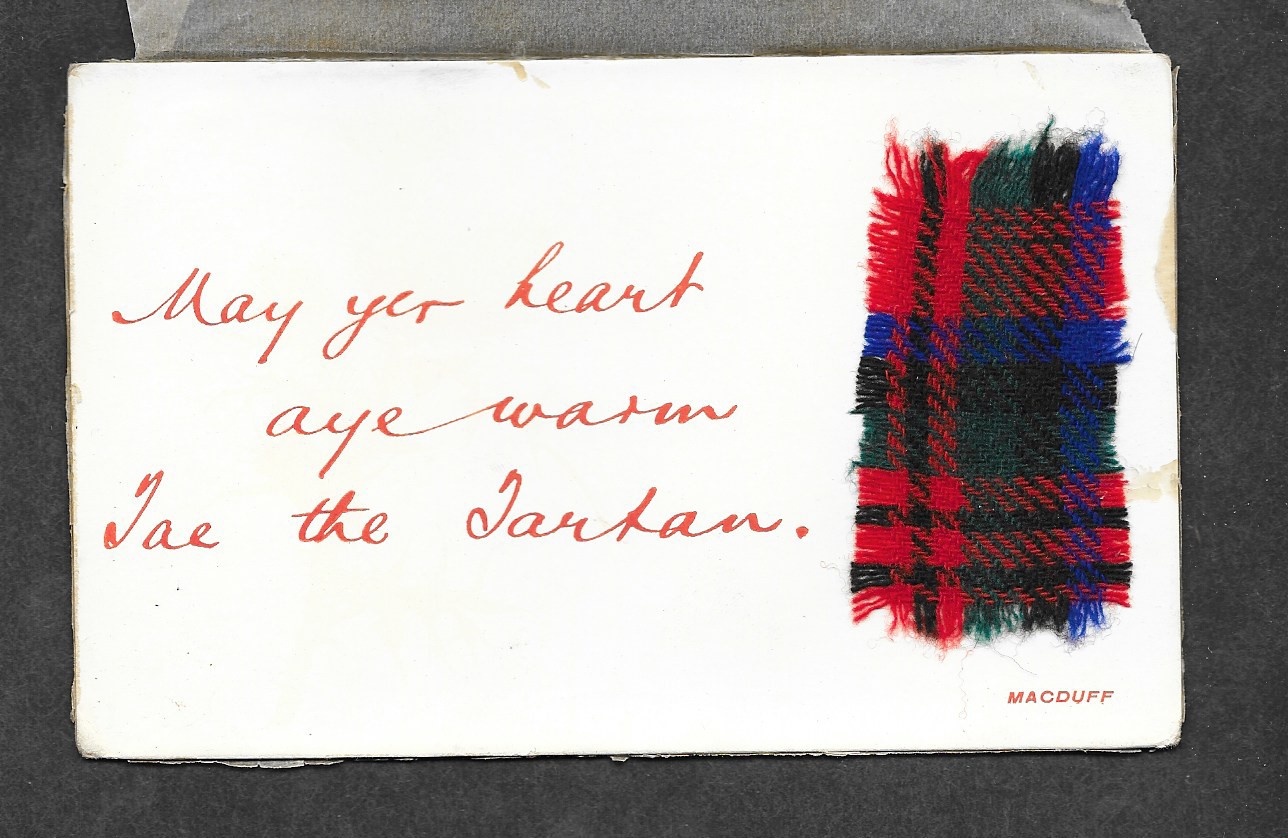 May yer heart
aye warm
Tae the Tartan.
MACDUFF